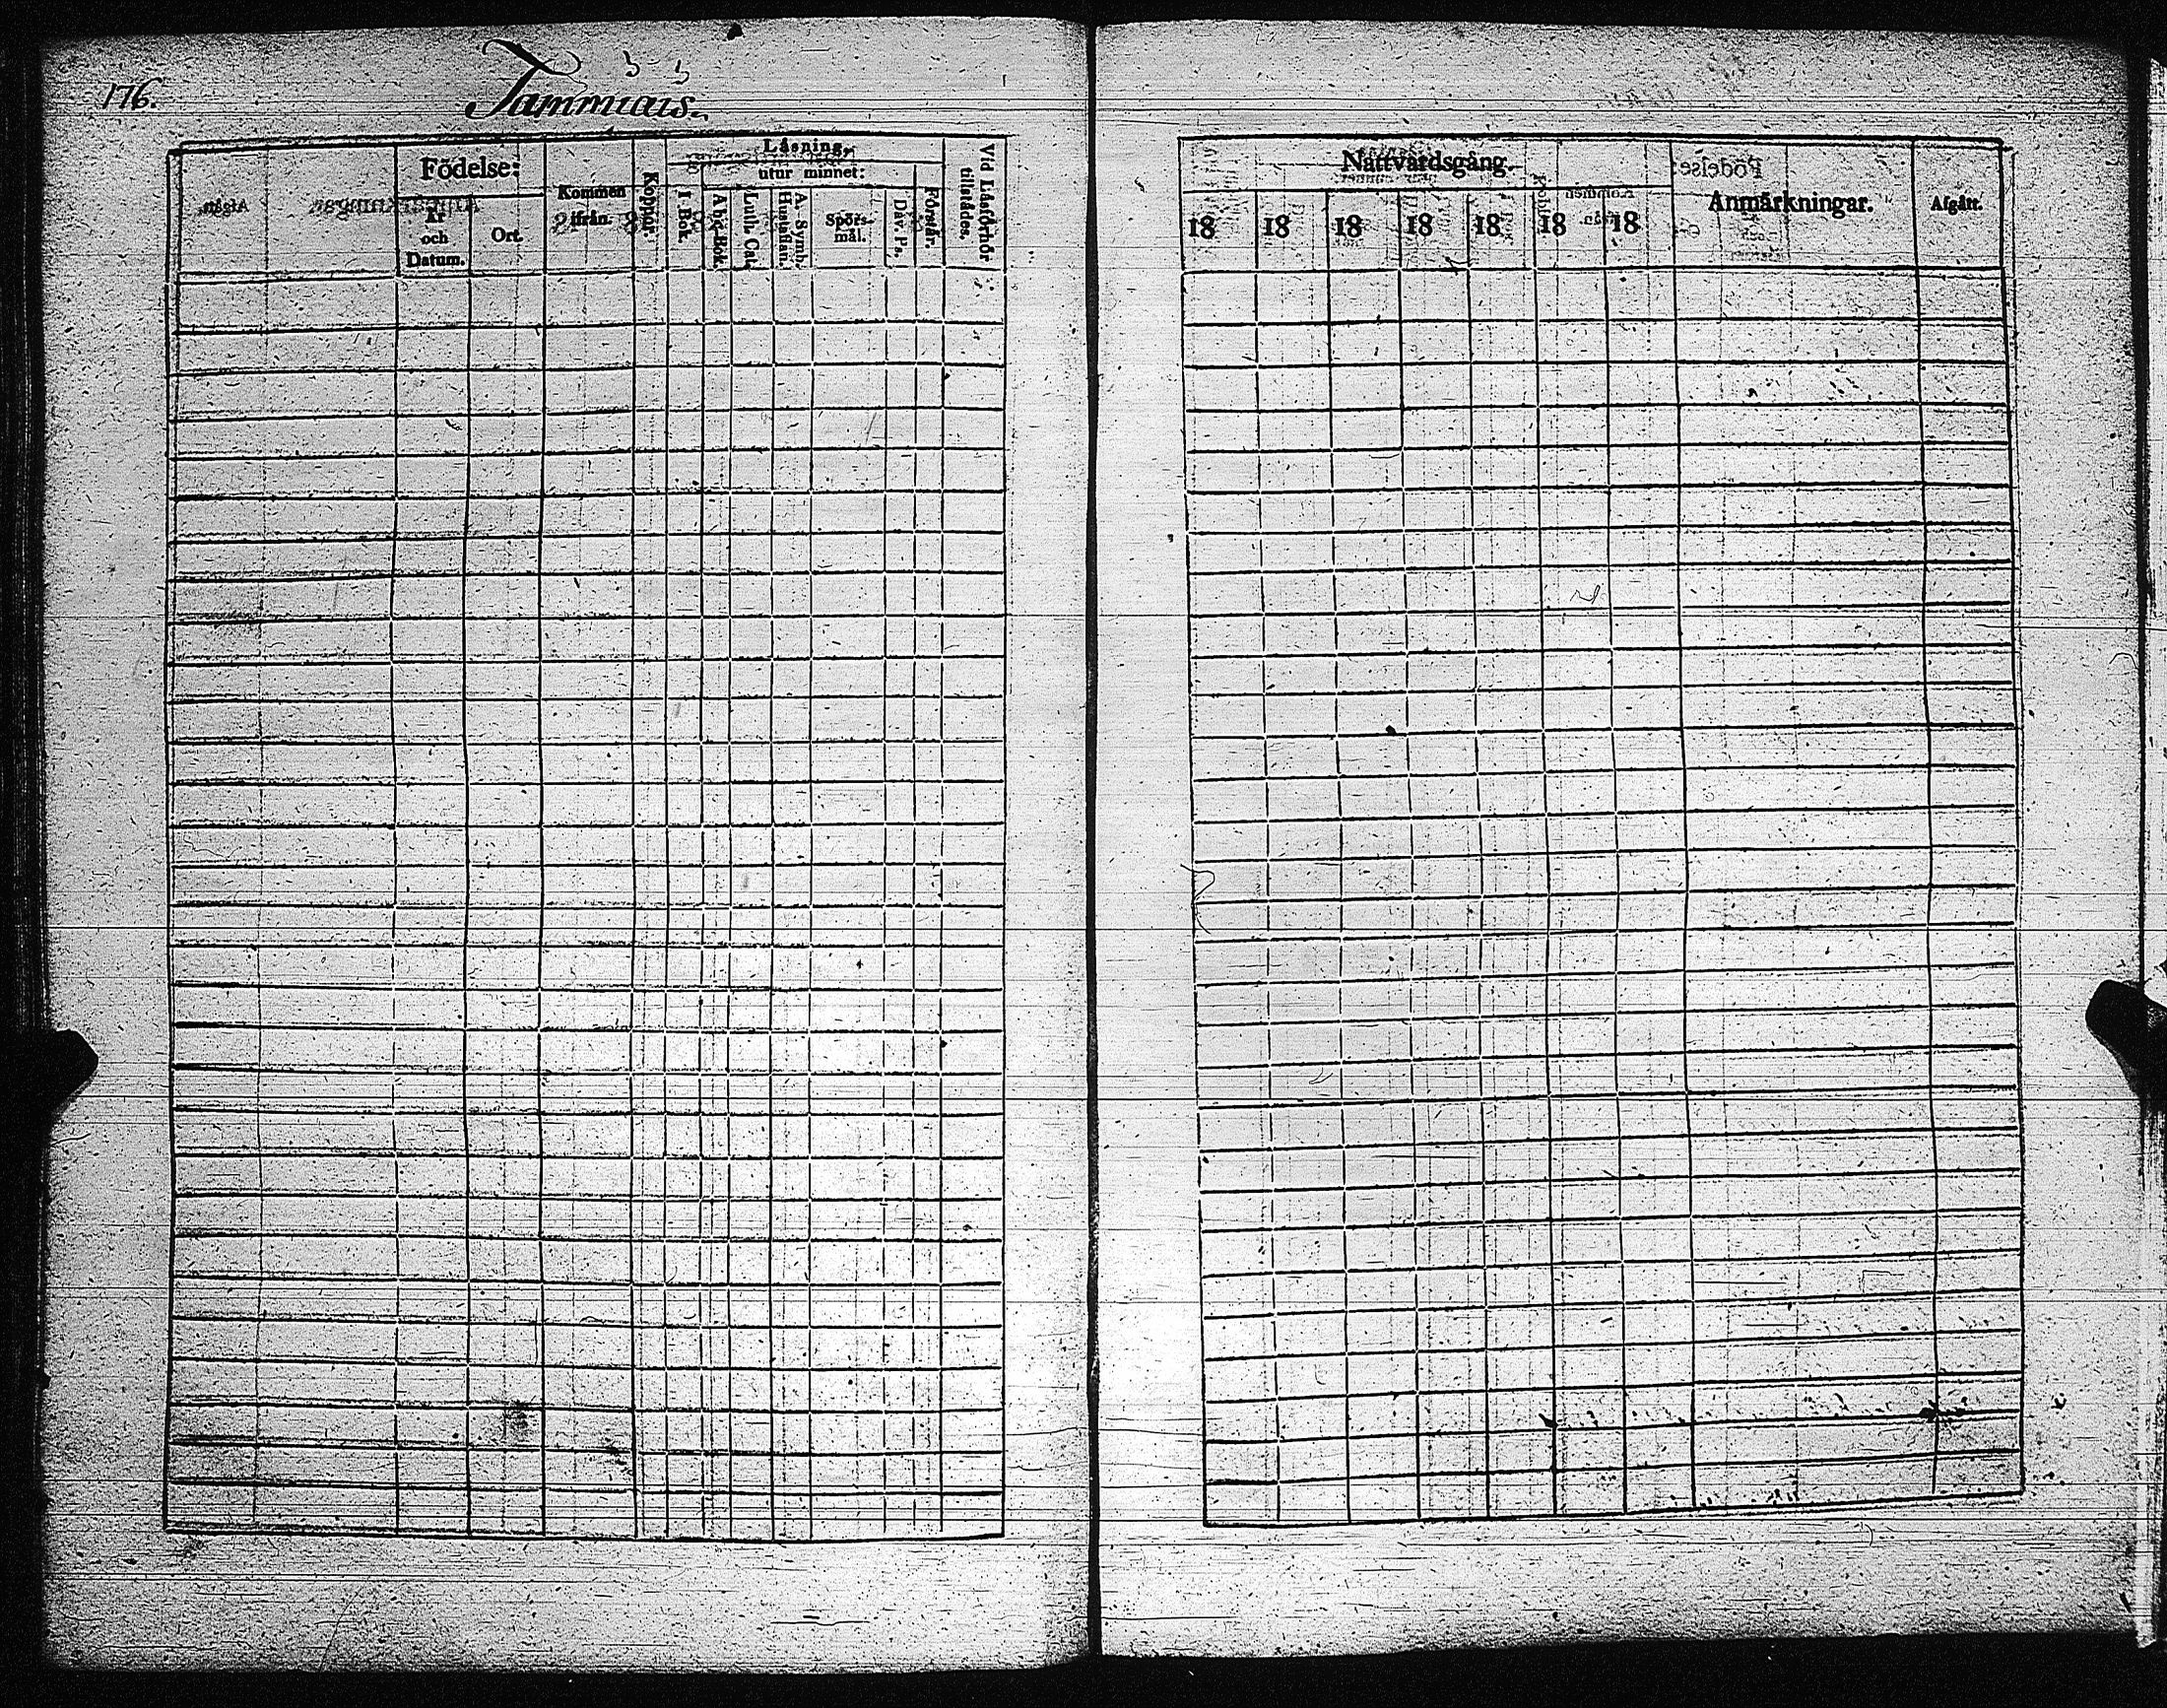 176.
Tammiais.
Födelse:
År och Datum.
Ort.
Kommen ifrån.
Koppor.
Läsning,
utur minnet:
I Bok.
Abc-Bok.
Luth. Cat.
A. Symb. Hustaflan.
Spörs-mål.
Dav. Ps.
Förstår.
Vid Läsförhör tilstådes.
Nattvardsgång.
18 18 18 18 18 18 18
Anmärkningar.
Afgått.